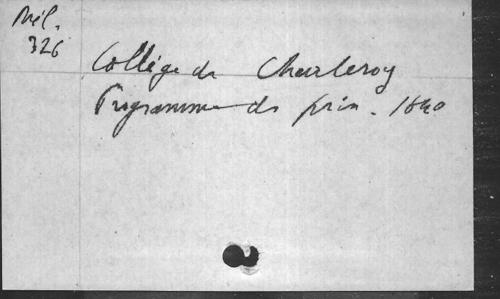 Mél.
326
Collège de Charleroy
Programme de prix. 1840